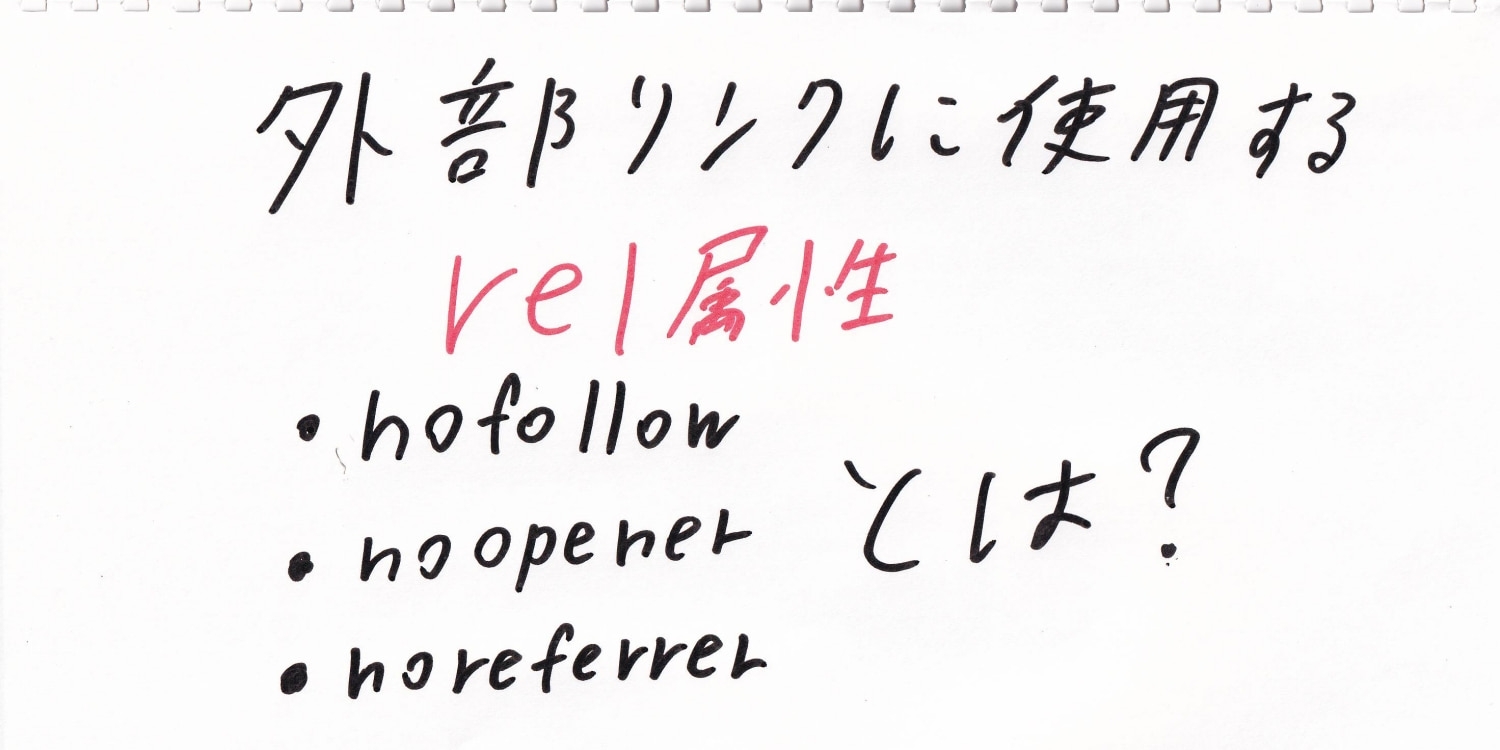 外部リンクに使用する
rel属性
・nofollow
・noopener とは?
・noreferrer